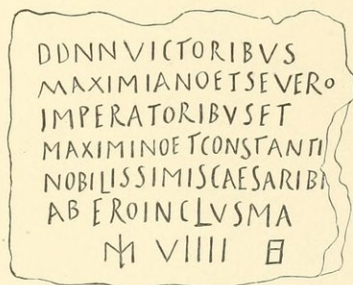 DDNNVICTORIBVS
MAXIMIANOETSEVERO
IMPERATORIBVSET
MAXIMINOETCONSTANTI
NOBILISSIMISCAESARIBI
AB EROINCLVSMA
VIIII